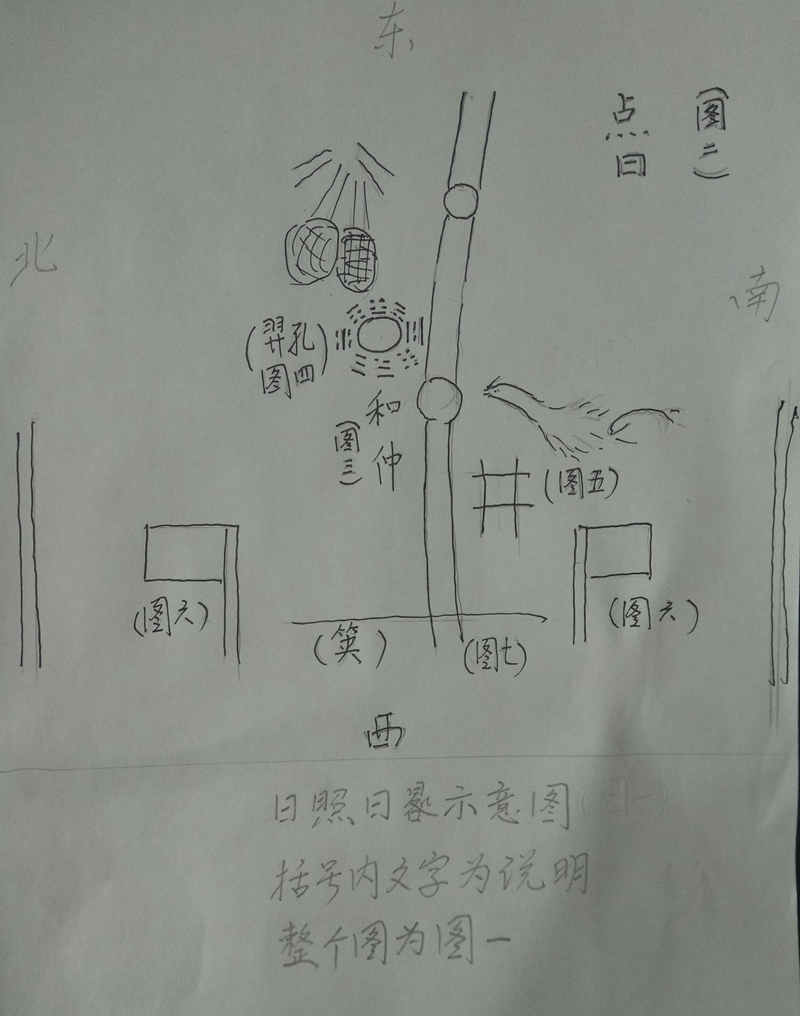 东
(图二)
点曰
北
南
(羿孔
图四)
和仲
(图三)
(图五)
(图六)
(图六)
(图七)
西
日照日晷示意图
括号内文字为说明
整个图为图一